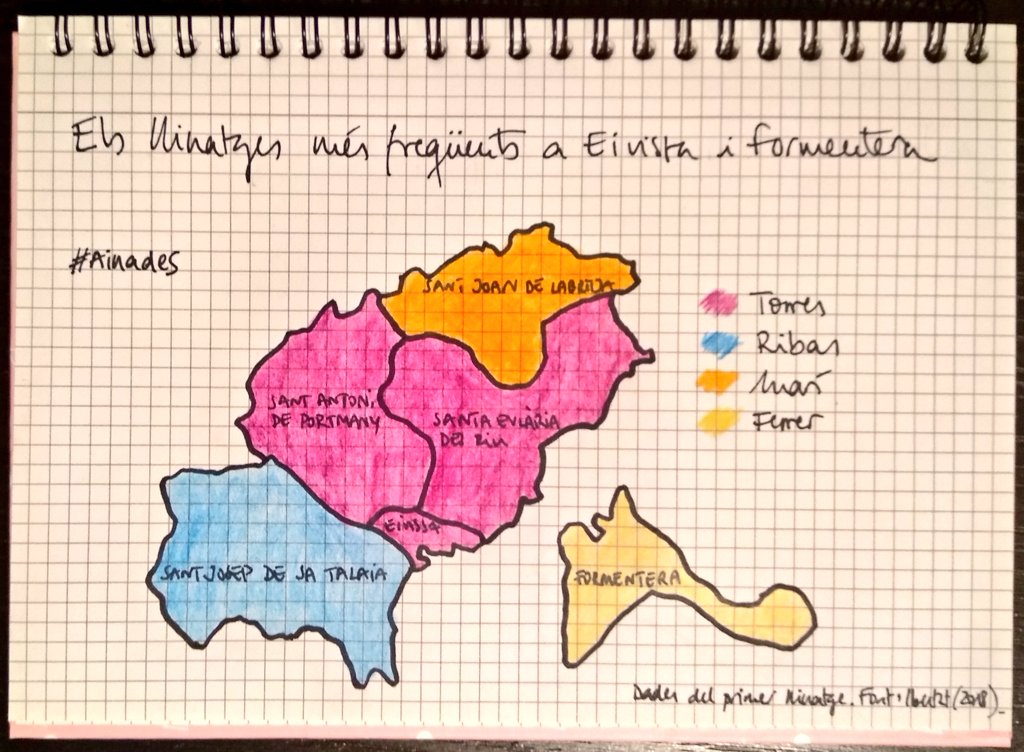 Els llinatges més freqüents a Eivissa i Formentera
#Ainades
SANT JOAN DE LABRITJA
Torres
Ribas
Marí
Ferrer
SANT ANTONI
DE PORTMANY
SANTA EULÀRIA
DES RIU
EIVISSA
SANT JOSEP DE SA TALAIA
FORMENTERA
Dades del primer llinatge. Font: Ibestat (2018)